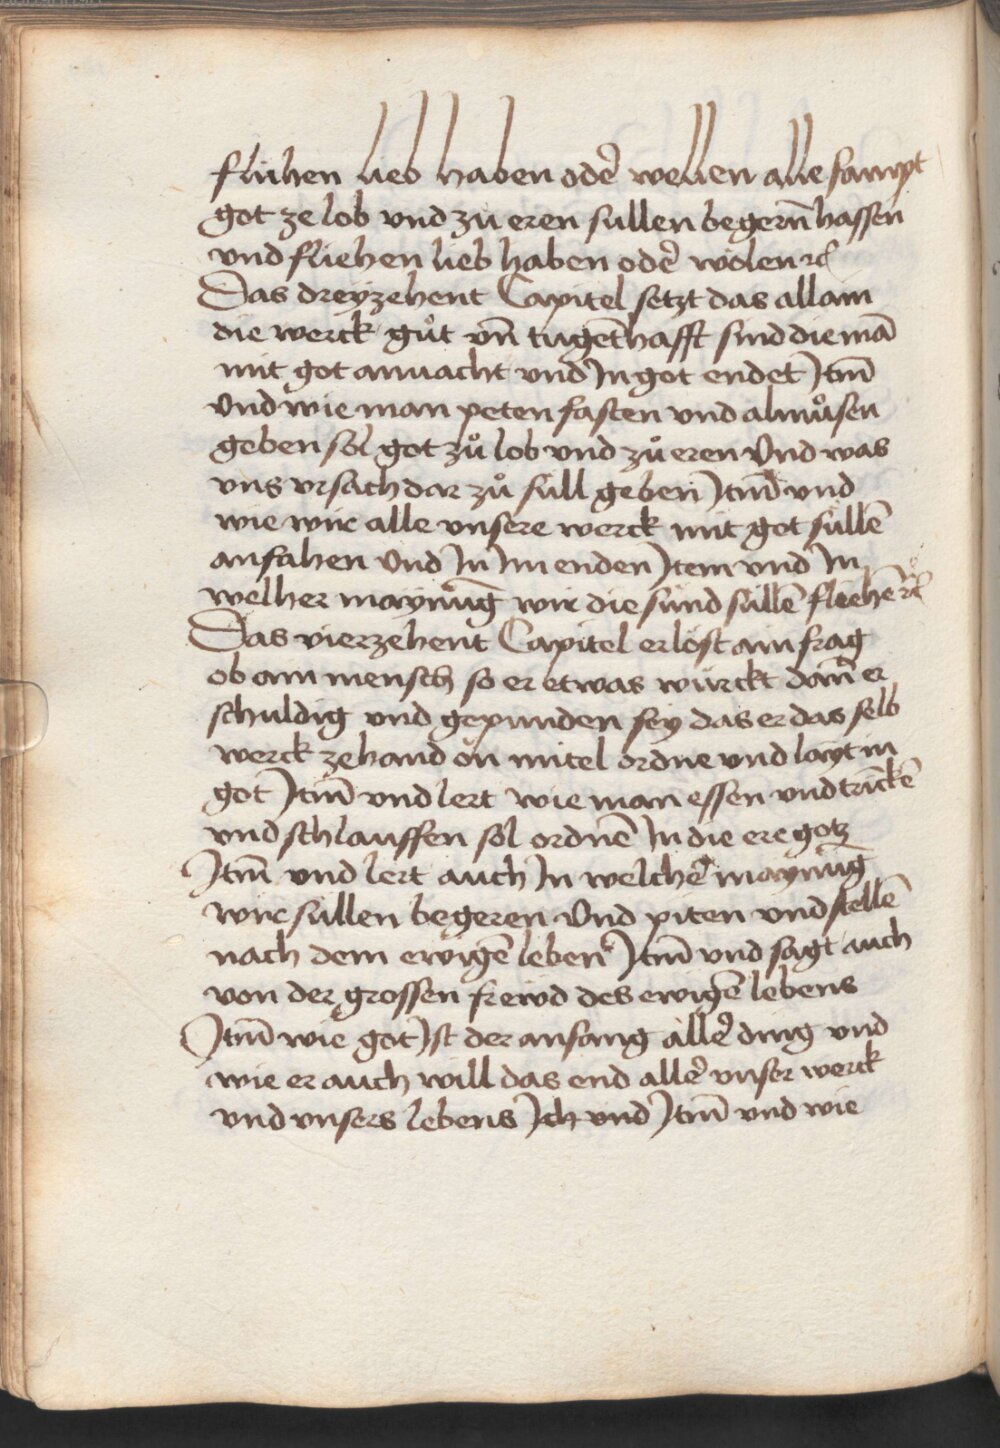 fliehen lieb haben oder̉ wellen alle sampt
got ze lob vnd zu eren sullen begern̄ hassen
vnd fliehen lieb haben oder̉ wőlen ꝛc̃
Das dreyzehent Capitel setzt das allain
die werck gůt vn̄ tuge̅thafft sind die ma̅
mit got anuacht vnd In got endet Itm̄
Vnd wie man peten fasten vnd almůsen
geben sol got zů lob vnd zů eren Vnd was
vns vrsach dar zů süll geben Itm̄ vnd
wie wir alle vnsere werck mit got sülle̅
anfahen Vnd In Im enden Item vnd In
welher maynu̅g wir die sünd sülle̅ fliehe̅ ꝛc̃
Das vierzehent Capitel erlöst ain frag
ob ain mensch so er etwas würckt dan̄ er
schuldig vnd gepunden sey das er das selb
werck zehand on mitel ordne vnd layt in
got Itm̄ vnd lert wie man essen vnd tri̅cke̅
vnd schlauffen sol ordne̅ In die ere gotz
Itm̄ vnd lert auch In welcher̉ maynu̅g
wir süllen begeren Vnd piten vnd stelle̅
nach dem ewige̅ leben Itm̄ vnd sagt auch
von der grossen frewd des ewige̅ lebens
Itm̄ wie got Ist der anfang aller̉ ding vnd
wie er auch will das end aller̉ vnser werck
vnd vnsers lebens Ich vnd Itm̄ vnd wie